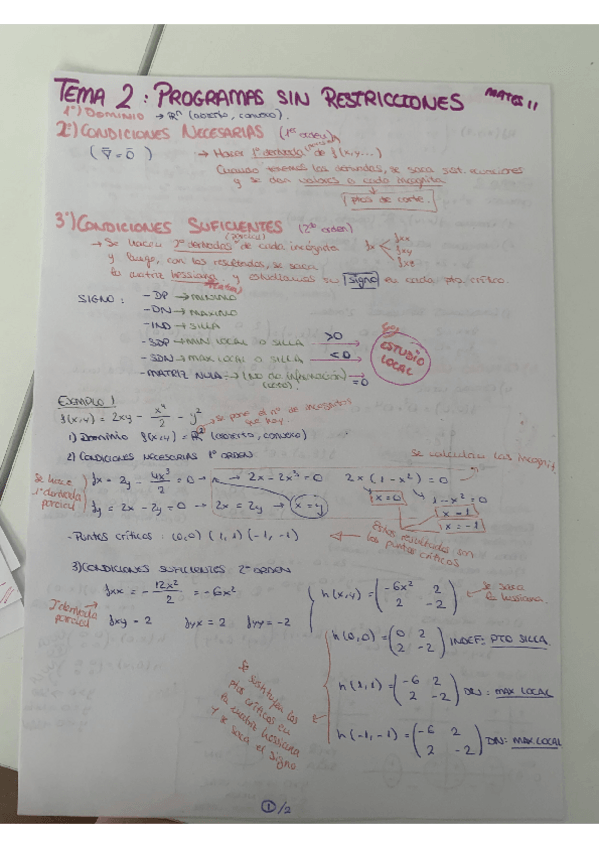 TEMA 2: PROGRAMAS SIN RESTRICCIONES MATES II
1º) DOMINIO → ℝⁿ (abierto, convexo).
2º) CONDICIONES NECESARIAS (1er orden)
(∇̄ = 0̄) → Hacer 1ª derivada parcial de f(x,y...)
Cuando tenemos las derivadas, se saca sist. ecuaciones
y se dan valores a cada incógnita
↓
ptos de corte.
3º) CONDICIONES SUFICIENTES (2º orden)
→ Se hacen 2ª derivadas (parcial) de cada incógnita fx < fxx fxy fxz
y luego, con los resultados, se saca
la matriz hessiana y estudiamos su signo en cada pto crítico.
SIGNO: - DP → MINIMO
- DN → MAXIMO
- IND → SILLA
- SDP → MIN LOCAL O SILLA >0
- SDN → MAX LOCAL O SILLA <0
- MATRIZ NULA → (NO DA INFORMACIÓN) =0
ESTUDIO LOCAL
EJEMPLO 1
f(x,y) = 2xy - x⁴/2 - y² → se pone el nº de incógnitas que hay.
1) Dominio f(x,y) = ℝ² (abierto, convexo)
2) CONDICIONES NECESARIAS 1º ORDEN
Se calculan las incógnit.
Se hace 1ª derivada parcial
fx = 2y - 4x³/2 = 0 → 2x - 2x³ = 0 2x(1-x²) = 0
x = 0 1-x² = 0
x = 1
x = -1
fy = 2x - 2y = 0 → 2x = 2y → x = y
- Puntos críticos: (0,0) (1,1) (-1,-1)
Estos resultados son los puntos críticos
3) CONDICIONES SUFICIENTES 2º ORDEN
fxx = -12x²/2 = -6x²
2 derivada parcial
fxy = 2 fyx = 2 fyy = -2
h(x,y) = (-6x² 2 / 2 -2) Se saca la hessiana.
h(0,0) = (0 2 / 2 -2) INDEF: PTO SILLA.
h(1,1) = (-6 2 / 2 -2) DN: MAX LOCAL
h(-1,-1) = (-6 2 / 2 -2) DN: MAX LOCAL
Se sustituyen los ptos críticos en la matriz hessiana y se saca el signo
1/2